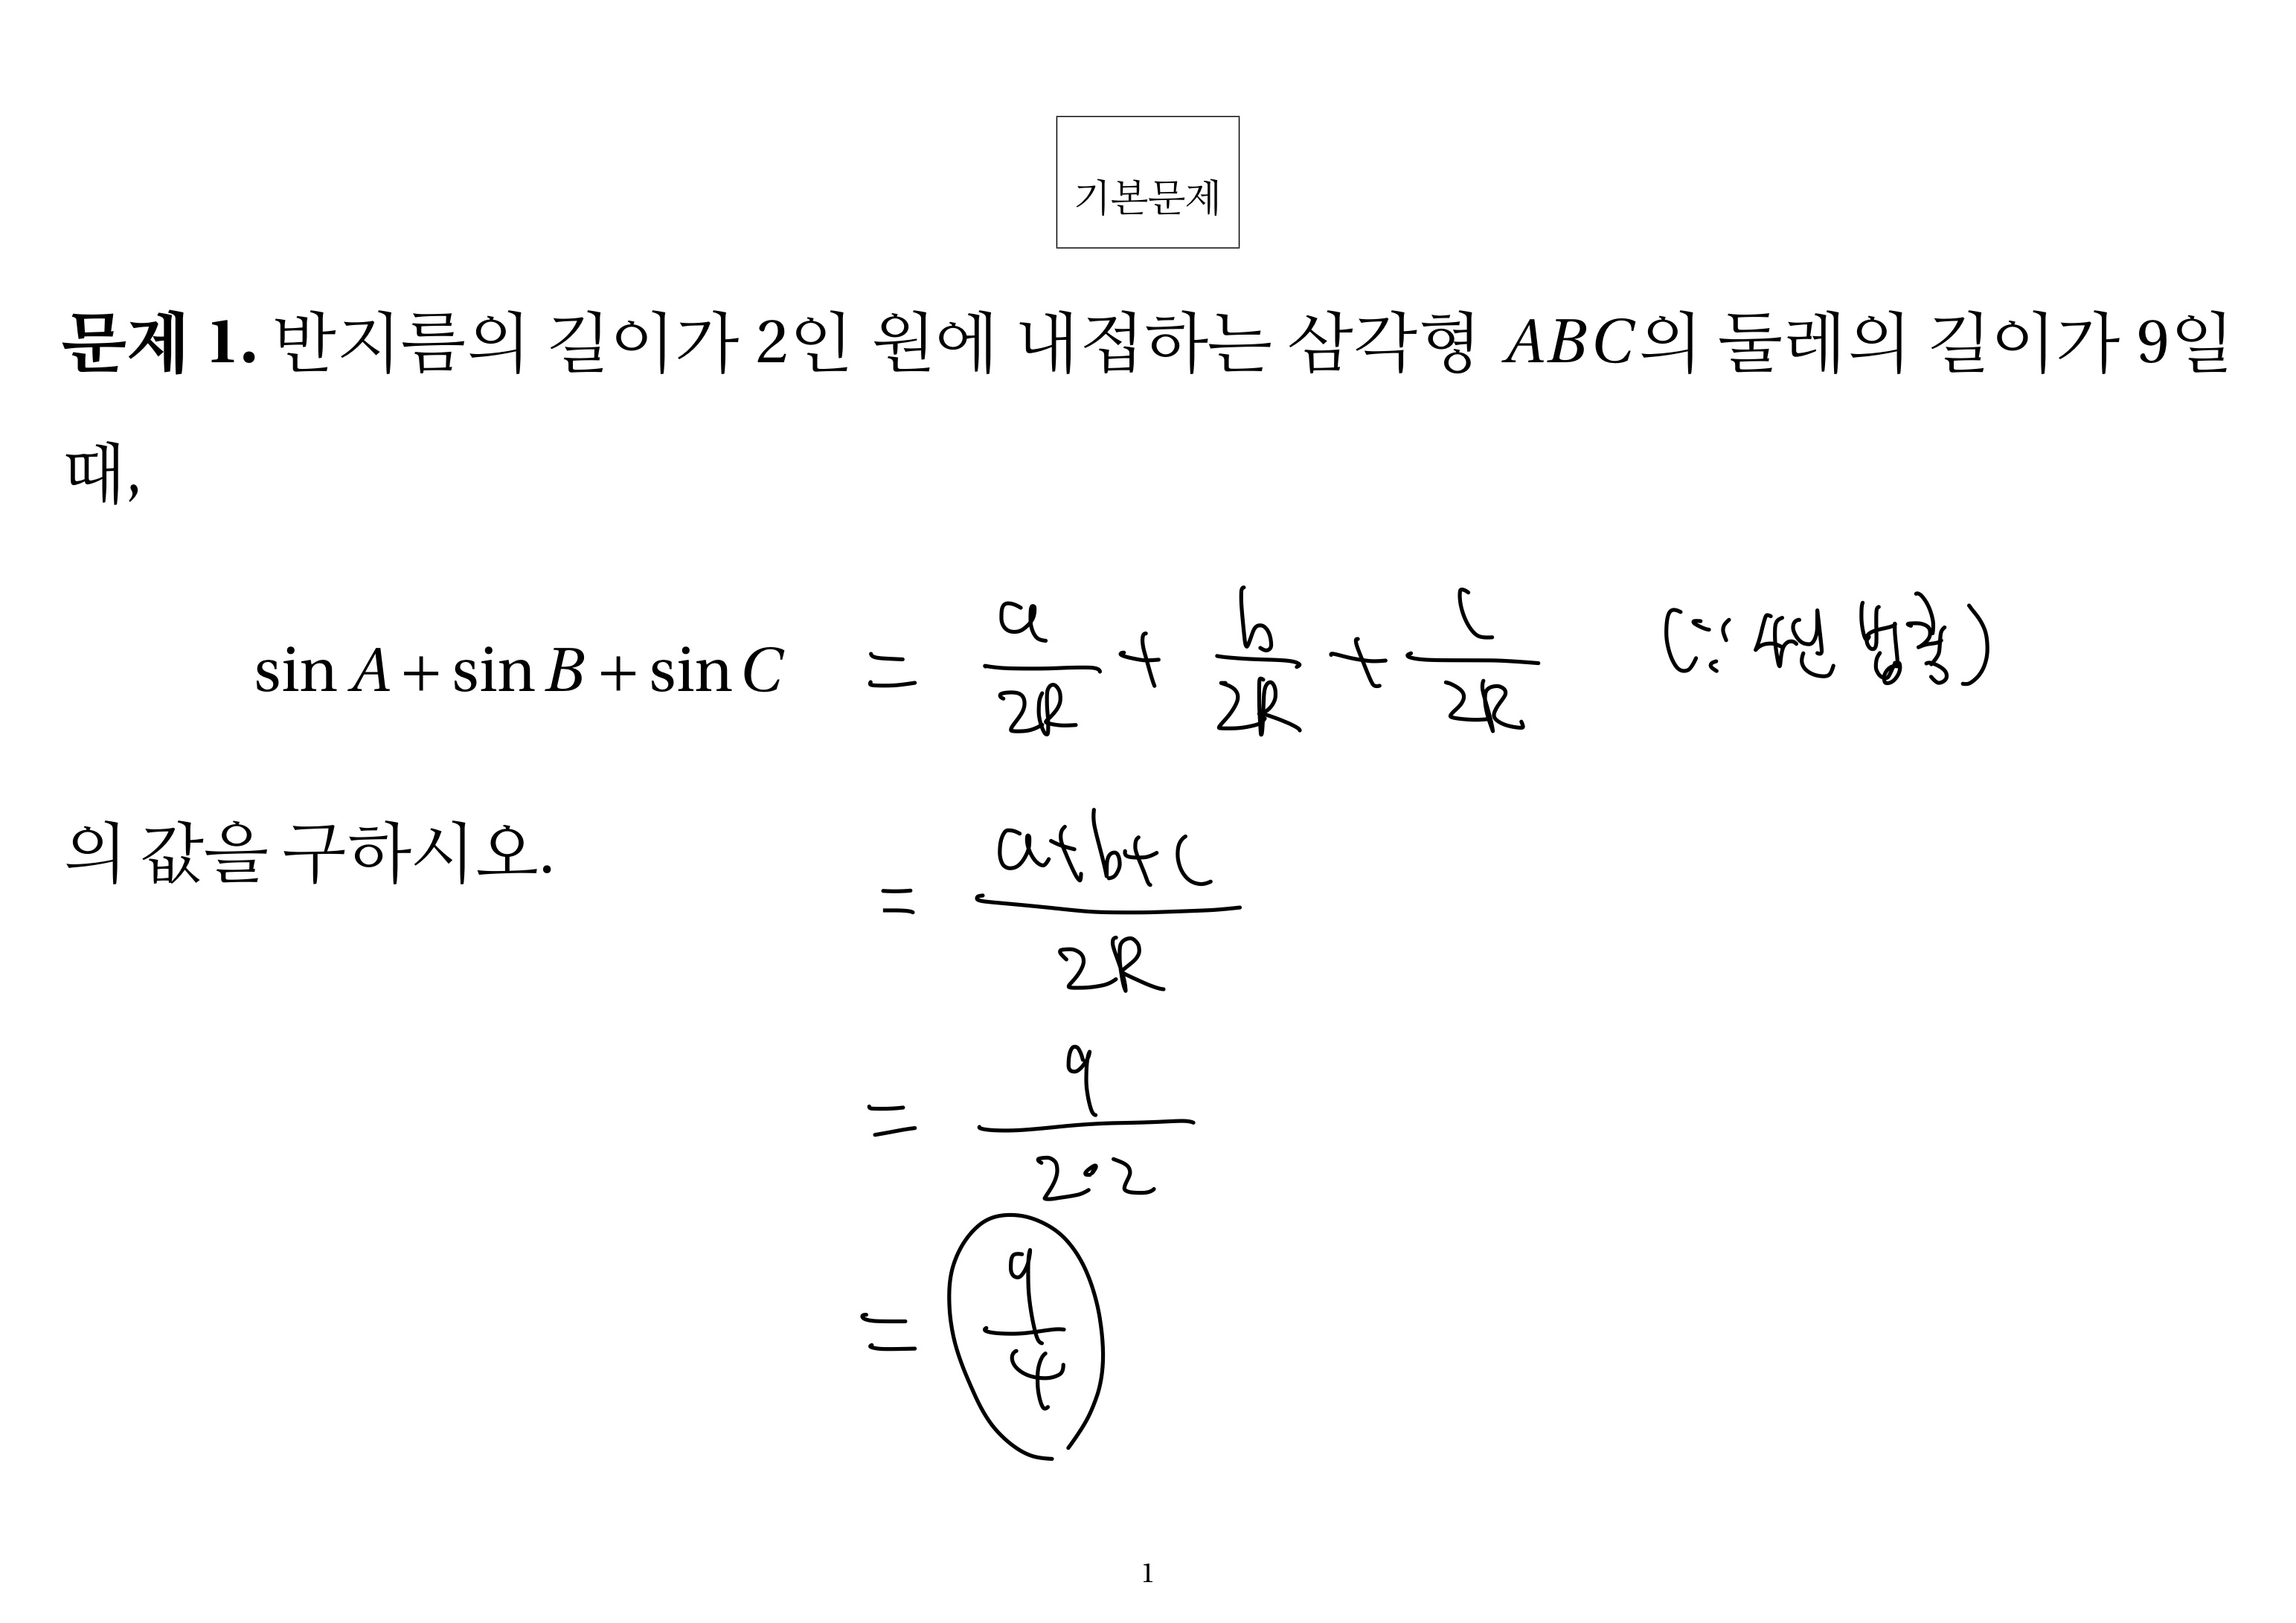 기본문제
문제 1. 반지름의 길이가 2인 원에 내접하는 삼각형 ABC의 둘레의 길이가 9일
때,
sin A + sin B + sin C = a/2R + b/2R + c/2R (∵ 사인법칙)
의 값을 구하시오.
= a+b+c/2R
= 9/2·2
= 9/4
1